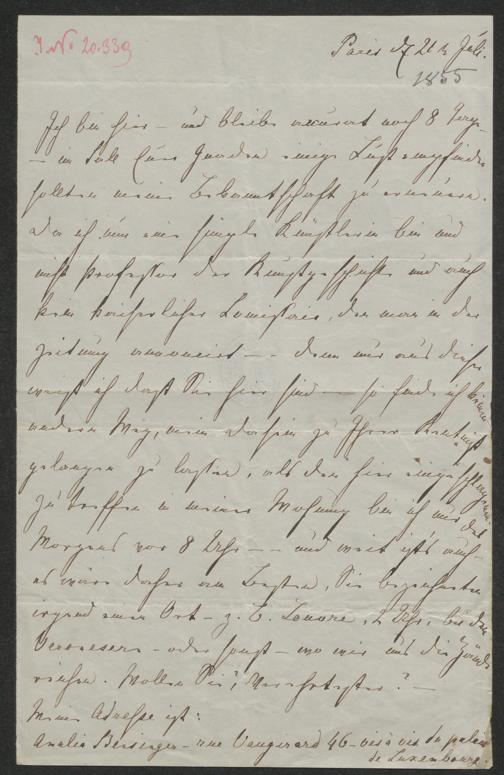 I.N. 20.339
Paris d 21t Juli.
1855
Ich bin hier – und bleibe noch 8 Tage
– im Fall Euer Gnaden einige Lust empfinden
sollten meine Bekanntschaft zu erneuern.
Da ich nur eine simple Künstlerin bin und
nicht Professor der Kunstgeschichte und auch
kein kaiserlicher Comissair, den man in der
Zeitung annoncirt – denn nur aus dieser
weiß ich daß Sie hier sind – so finde ich keinen
andern Weg, mein Dasein zu Ihrer Kentniß
gelangen zu lassen, als den hier eingeschlagenen
Zu treffen in meiner Wohnung bin ich nur des
Morgens vor 8 Uhr – und weit ist's auch –
es wäre daher am Besten, Sie bezeichneten
irgend einen Ort – z. B. Louvre, 2 Uhr, bei den
Veronesern – oder sonst – wo wir uns die Hände
reichen. Wollen Sie, Verehrtester? –
Meine Adresse ist:
Amalia Bensinger – rue Vaugirard 46 – vis à vis du palais
de Luxembourg